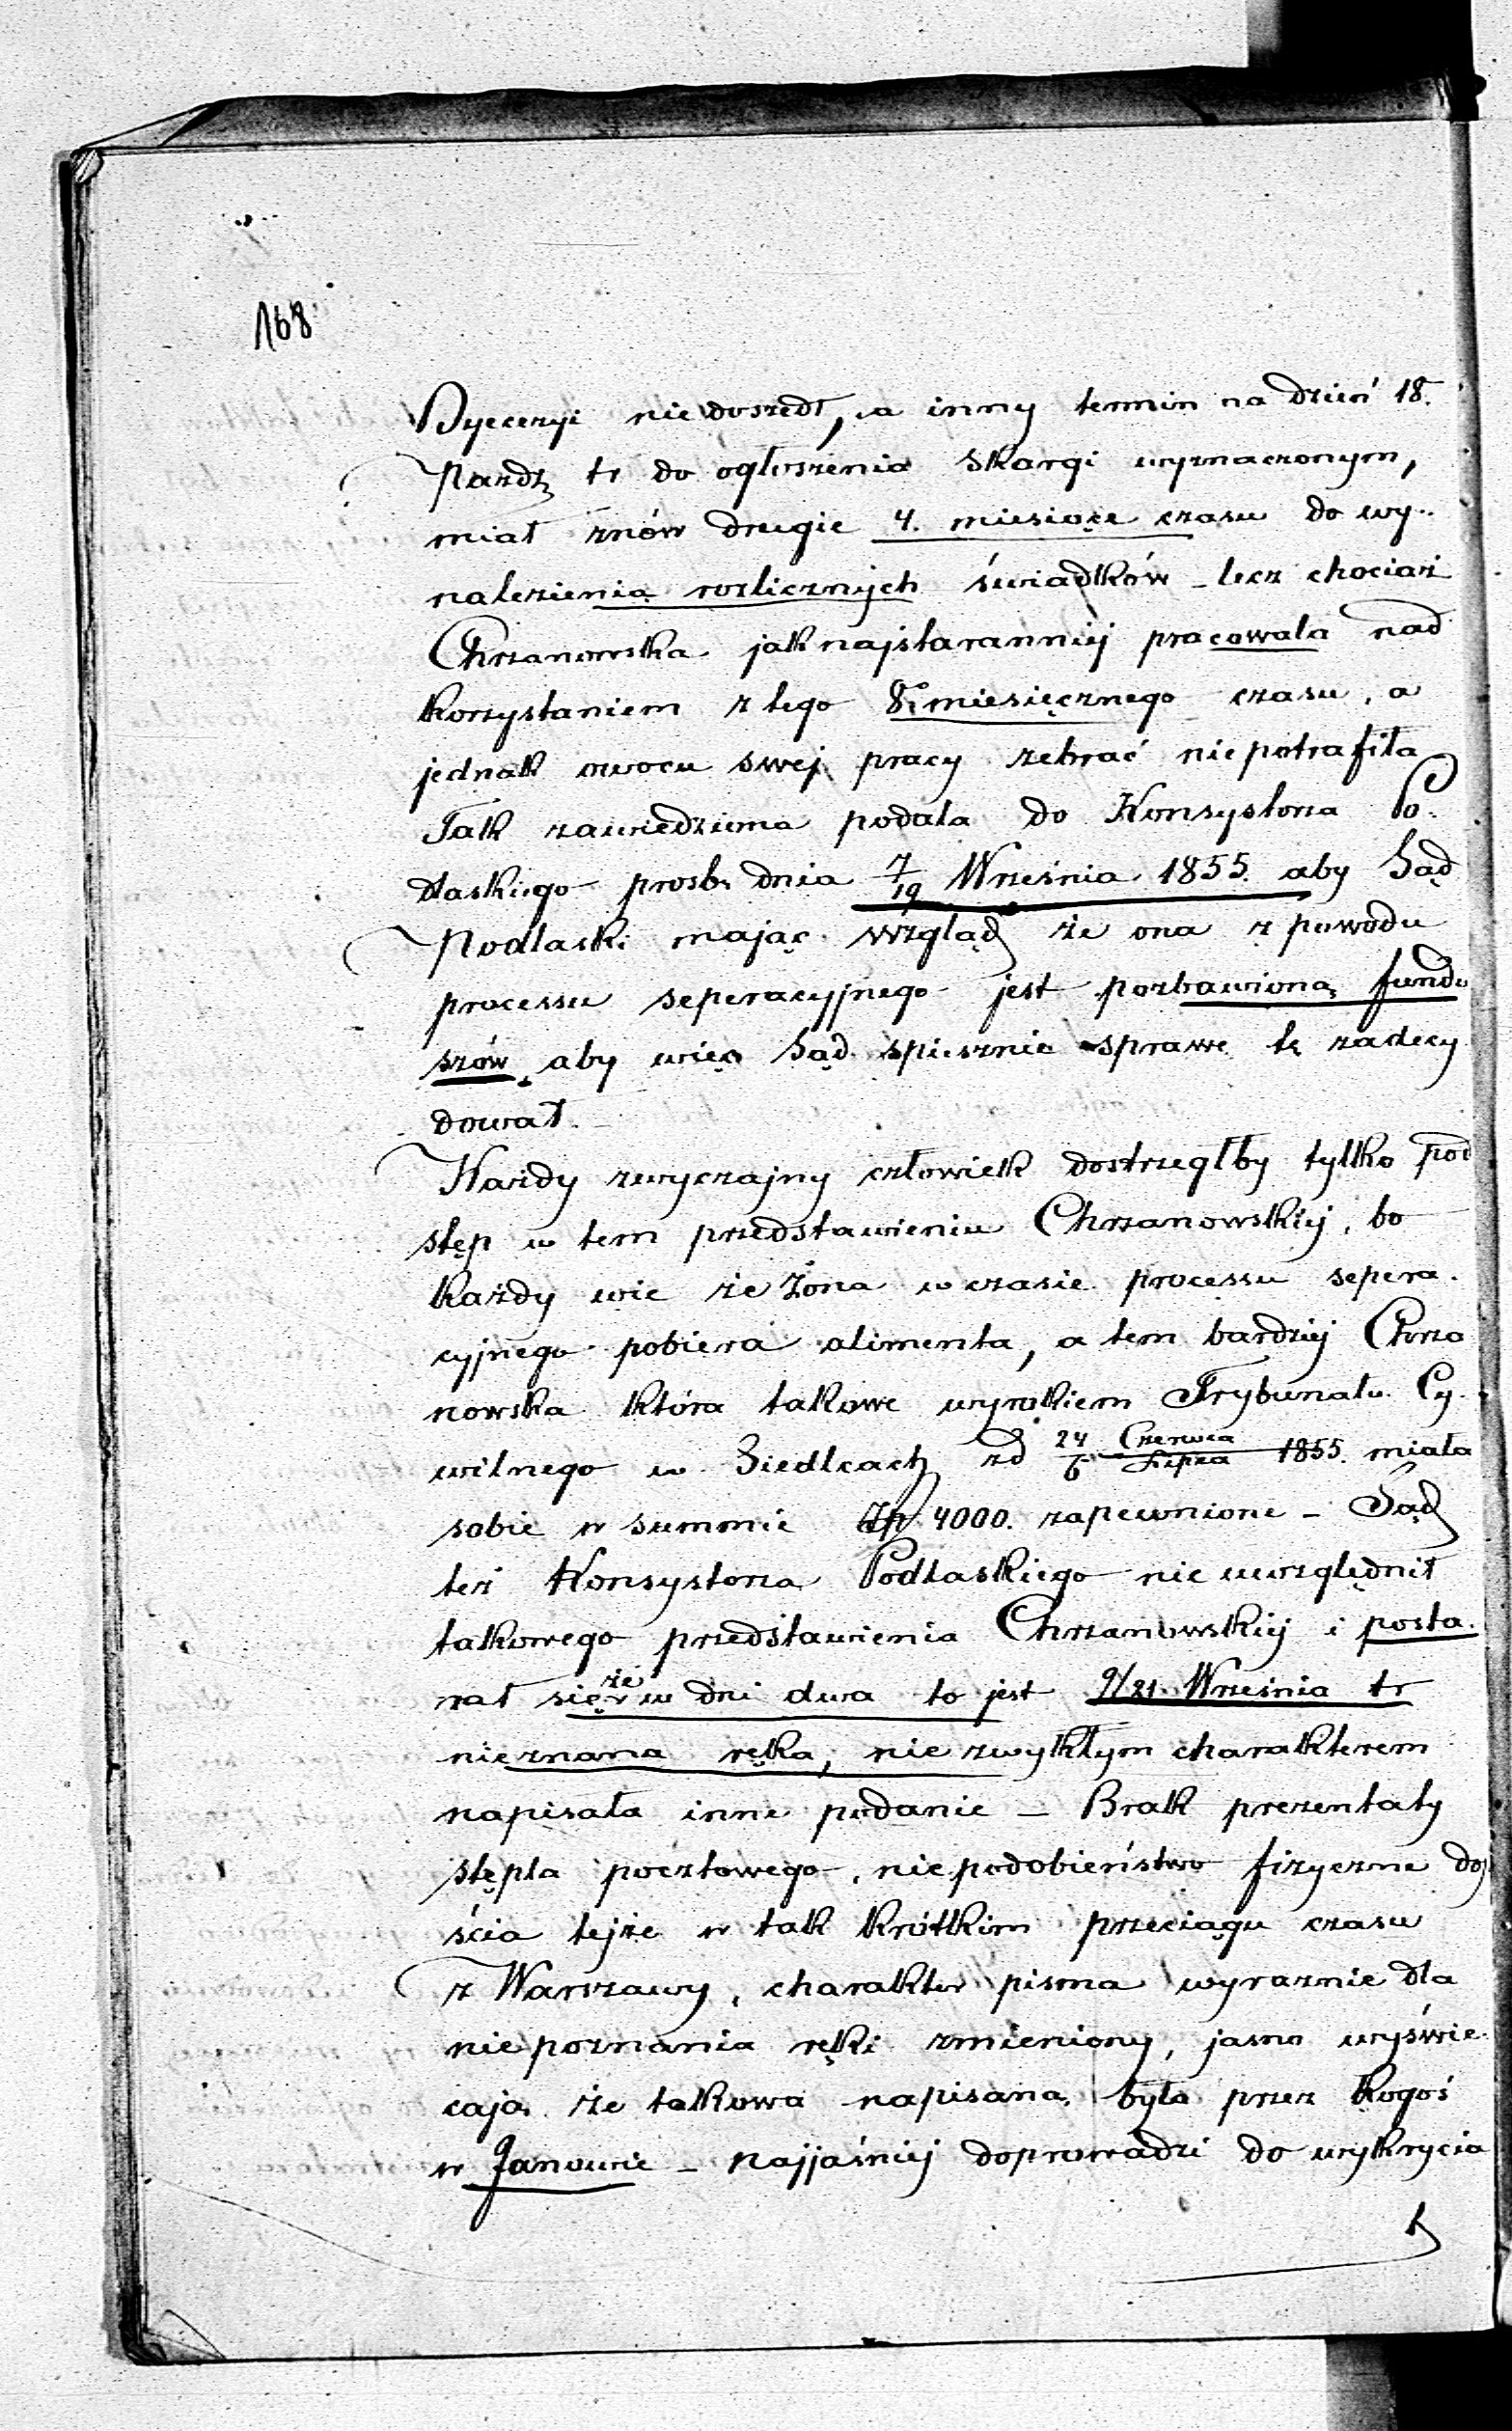 168
Dyecezyi niedoszedł, a inny termin na dzień 18.
Paźdz tr do ogłoszenia skargi wyznaczonym,
miał znów drugie 4. miesiące czasu do wy-
nalezienia rozlicznych świadków – lecz chociaż
Chrzanowska jaknajstaranniej pracowała nad
korzystaniem z tego 8. miesięcznego czasu, a
jednak owocu swej pracy zebrać niepotrafiła
Tak zawiedziona podała do Konsystorza Po-
dlaskiego prośbę dnia 7/19 Września 1855. aby Sąd
Podlaski mając wzgląd że ona z powodu
processu seperacyjnego jest pozbawioną fundu
szów, aby więc Sąd spiesznie sprawę tę zadecy
dował.
Każdy zwyczajny człowiek dostrzegłby tylko pod
stęp w tem przedstawieniu Chrzanowskiej, bo
każdy wie że Żona w czasie processu sepera-
cyjnego pobiera alimenta, a tem bardziej Chrza
nowska która takowe wyrokiem Trybunału Cy-
wilnego w Siedlcach zd 24 Czerwca/6 Lipca 1855. miała
sobie w summie Zp 4000. zapewnione – Sąd
też Konsystorza Podlaskiego nie uwzględnił
takowego przedstawienia Chrzanowskiej i posta-
rał się że w dni dwa to jest 9/21 Września tr
nieznana ręka, niezwykłym charakterem
napisała inne podanie – Brak prezentaty
stępla pocztowego, niepodobieństwo fizyczne doj
ścia tejże w tak krótkim przeciągu czasu
z Warszawy, charakter pisma wyraznie dla
niepoznania ręki zmieniony, jasno wyświe-
cają że takowa napisana była przez kogoś
w Janowie – najjaśniej doprowadzi do wykrycia